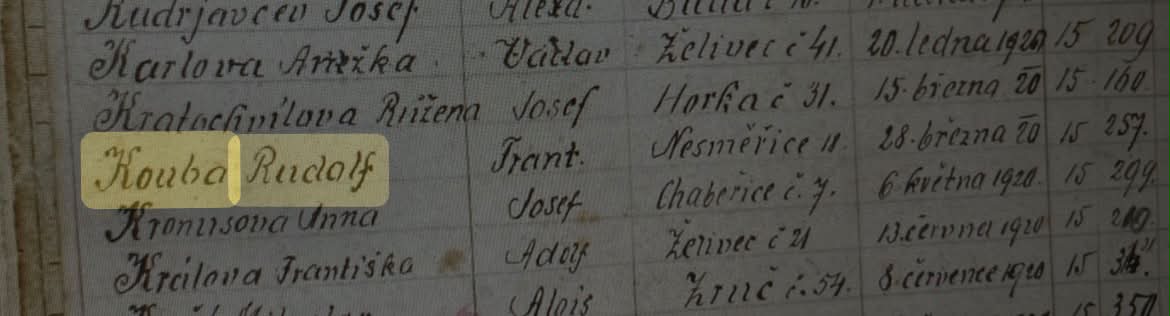 Kudrjavcev Josef Alexa.
Karlova Anežka Václav Želivec č 41. 20. ledna 1920 15 209
Kratochvílova Růžena Josef Horka č 31. 15. března 20 15 160
Kouba Rudolf Frant. Nesměřice 11 28. března 20 15 257.
Josef Chabeřice č. 7. 6 května 1920. 15 299
Anna Adolf Želivec č 21 13. června 1920 15
Králova Františka Alois Zruč č. 54. 8. července 1920 15
15 350